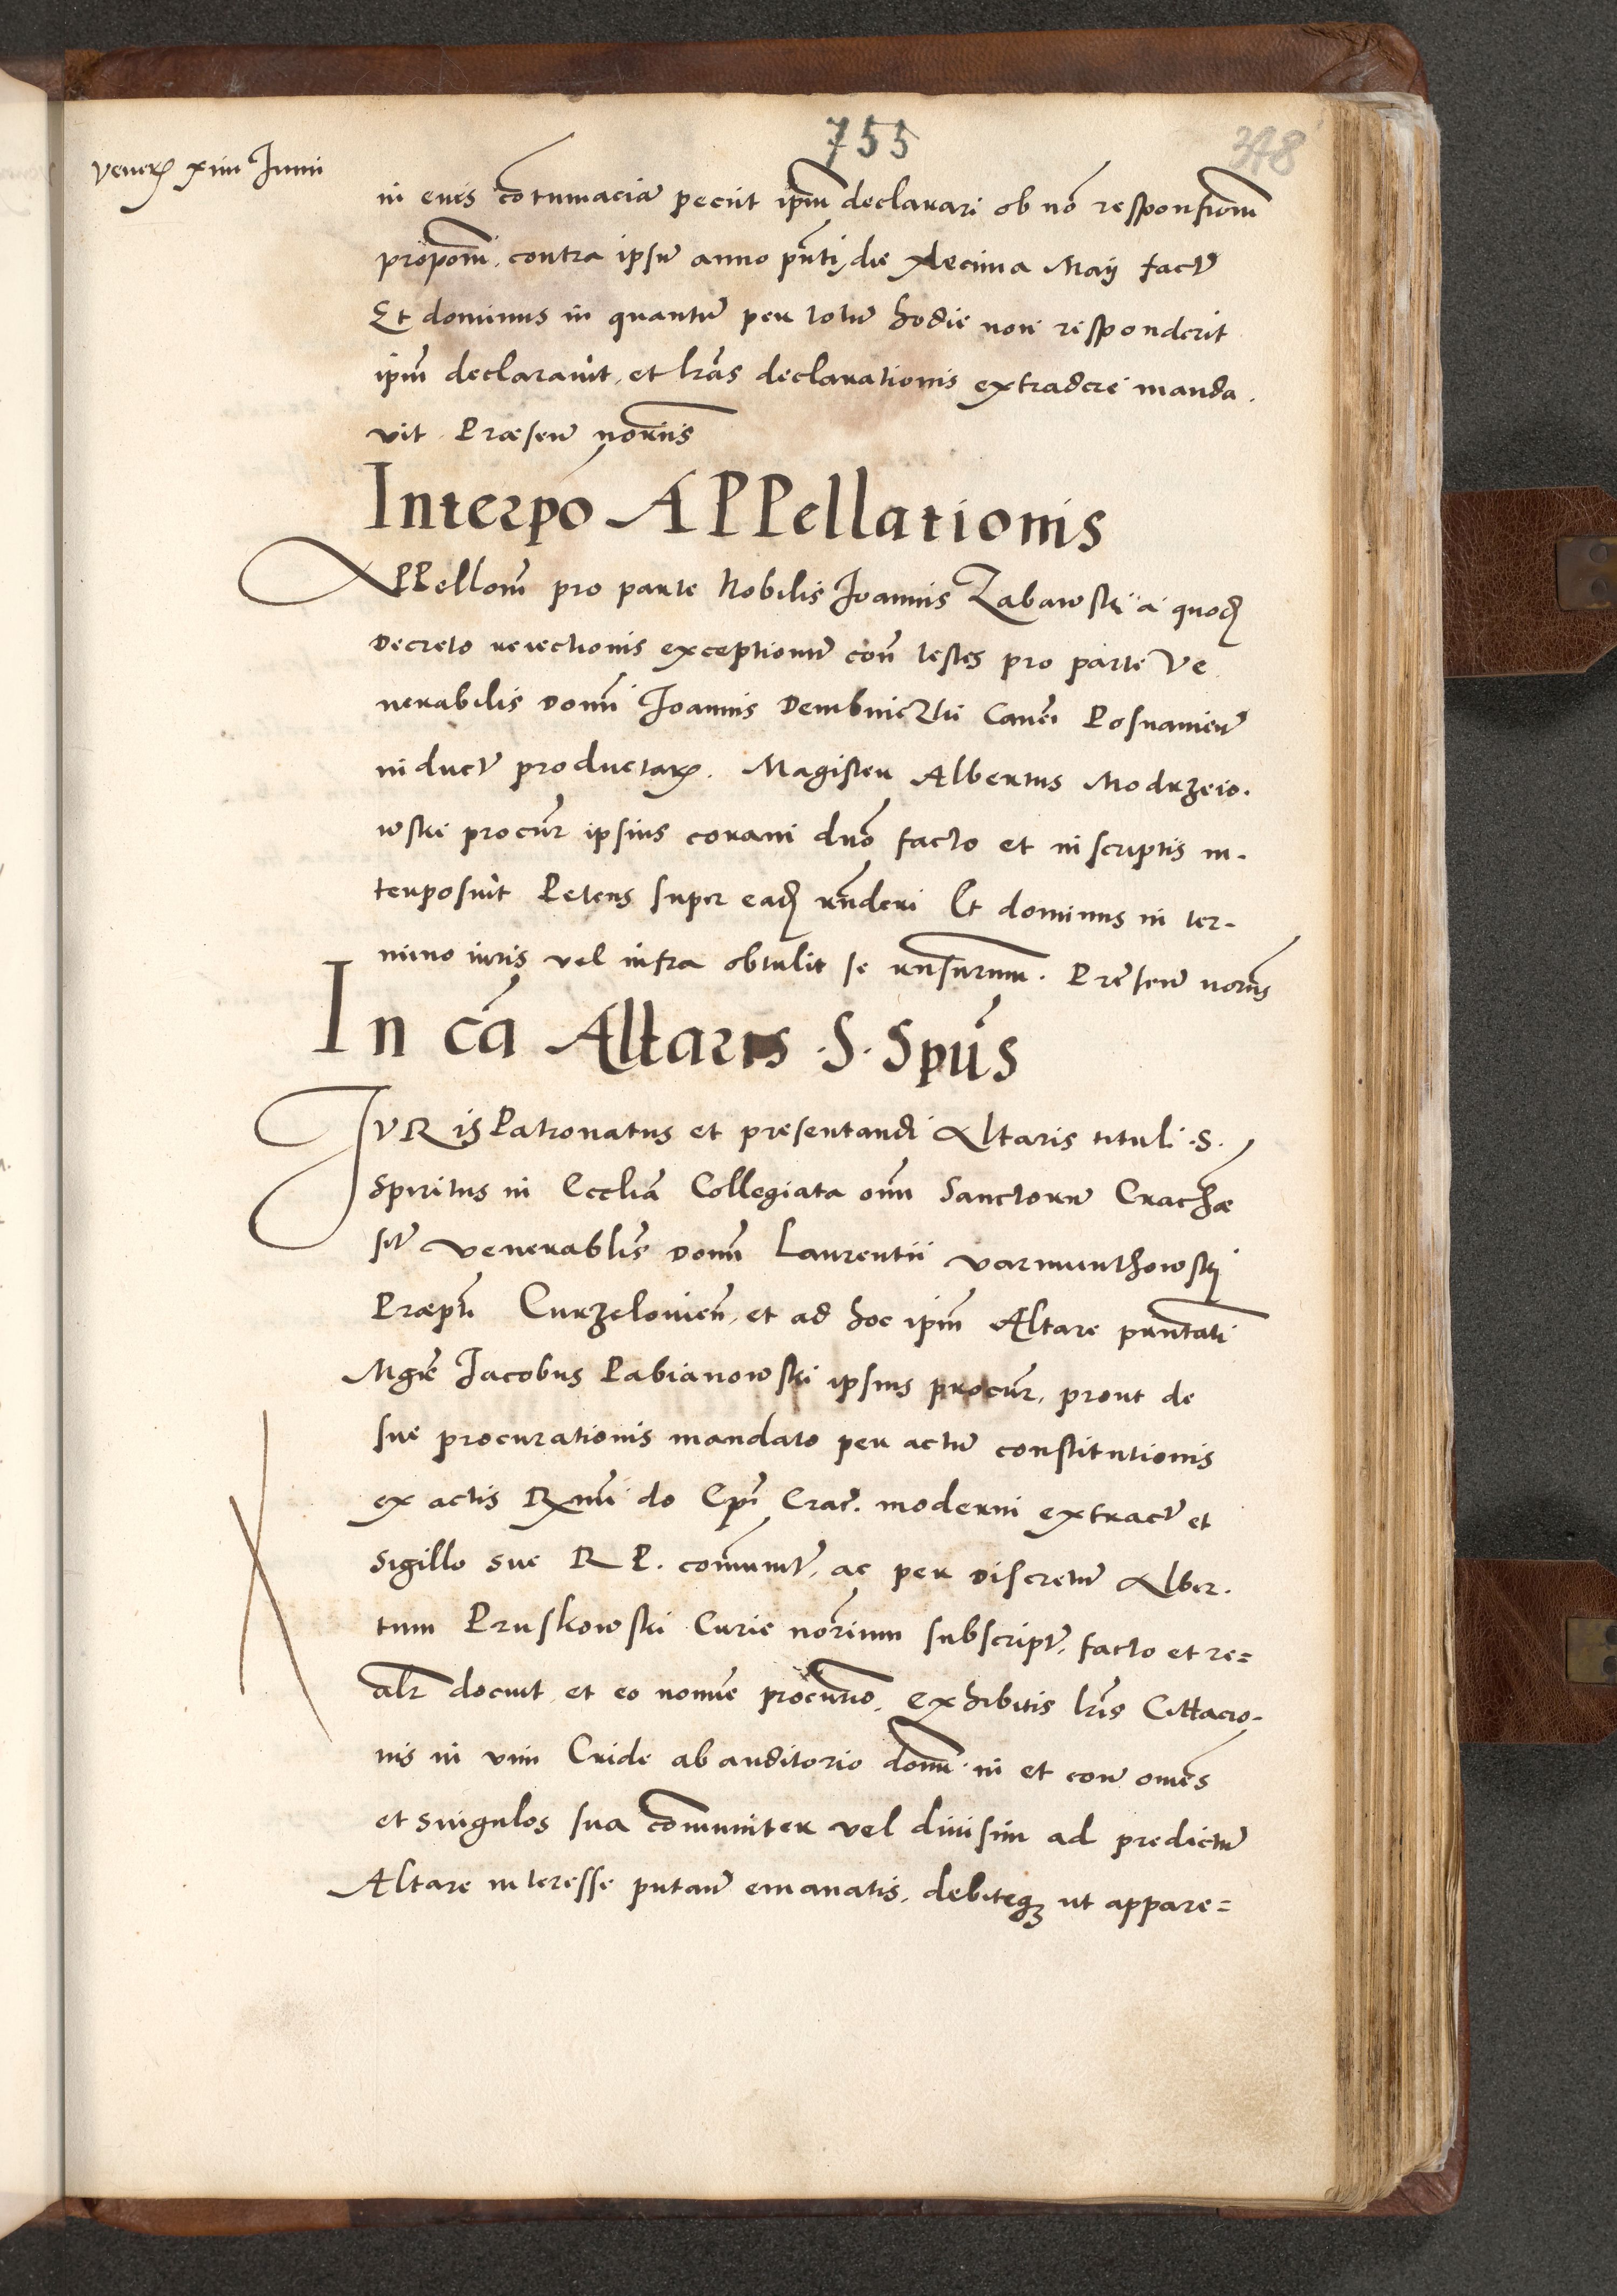 755
378
Venerꝭ xiiii Junii
in eius cōtumaciā peciit ipm̄ declarari ob nō responsionm̄
proponi, contra ipsū anno pn̄ti, die Xdecima Maij factū
Et dominus in quantū per totū hodie non responderit
ipm̄ declarauit, et lr̄as declarationis extradere manda.
vit. Præsenī norūs
Interpo APPellationis
APPellonm̄ pro parte Nobilis Joannis Zabawski a quodꝫ
Decreto reiectionis exceptionū con̄ testes pro parte Ve
nerabilis Domī Joannis Dembnickii Caneī Posnanieñ
inductū productarꝝ. Magister Albertus Modrzeio.
wski procūr ipsius coram dnō facto et in scriptis in.
terposuit Petens super eadꝫ rn̄deri Et dominus in ter-
mino iuris vel infra obtulit se rn̄surum. Pre͂senī norūs
In cā Altaris .S. Spūs
JVRis Patronatus et presentandi Altaris tituli .S.
Spiritus in Eccliā Collegiata om̄ Sanctorū Crachæ
sit̄ Venerablīs Domī Laurentii Varmunthowskj
Præpti Curzelovien̄, et ad hoc ipm̄ Altare prn̄tati
Mgr̄ Jacobus Pabianowski ipsius procūr, prout de
sue procurationis mandato per actū constitutionis
ex actis Rm̄i do Epī Crac̄. moderni extractū et
Sigillo sue R P. comunit̄, ac per Discretū Alber.
tum Pruskowski Curie norium subscript̄, facto et re=
alr̄ docuit, et eo nomine procurīo, exhibitis lr̄is Cittacio.
nis in vim Cride ab auditorio domī ni et con̄ omēs
et singulos sua comuniter vel diuisim ad predictū
Altare interesse putanī emanatis, debiteqꝫ ut appare=